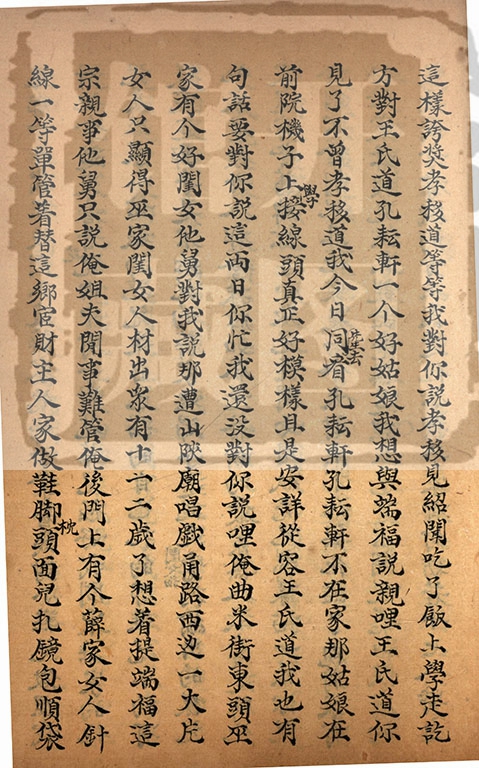 這樣誇奬孝移道等等我對你說孝移見紹聞吃了飯上學走訖
方對王氏道孔耘軒一个好姑娘我想與端福說親哩王氏道你
見了不曾孝移道我今日同宿孔耘軒孔耘軒不在家那姑娘在
前院機子上學接線頭真正好模樣且是安詳從容王氏道我也有
句話要對你說這両日你忙我還没對你說哩俺曲米街東頭巫
家有个好閨女他舅對我說那遭山陜廟唱戯甬路西边一大片
女人只顯得巫家閨女人材出衆有十一二歲了想着提端福這
宗親事他舅只說俺姐夫閒事難管俺後門上有个薛家女人針
線一等單管着替這鄉宦財主人家做鞋脚枕頭面兒扎鏡包順袋